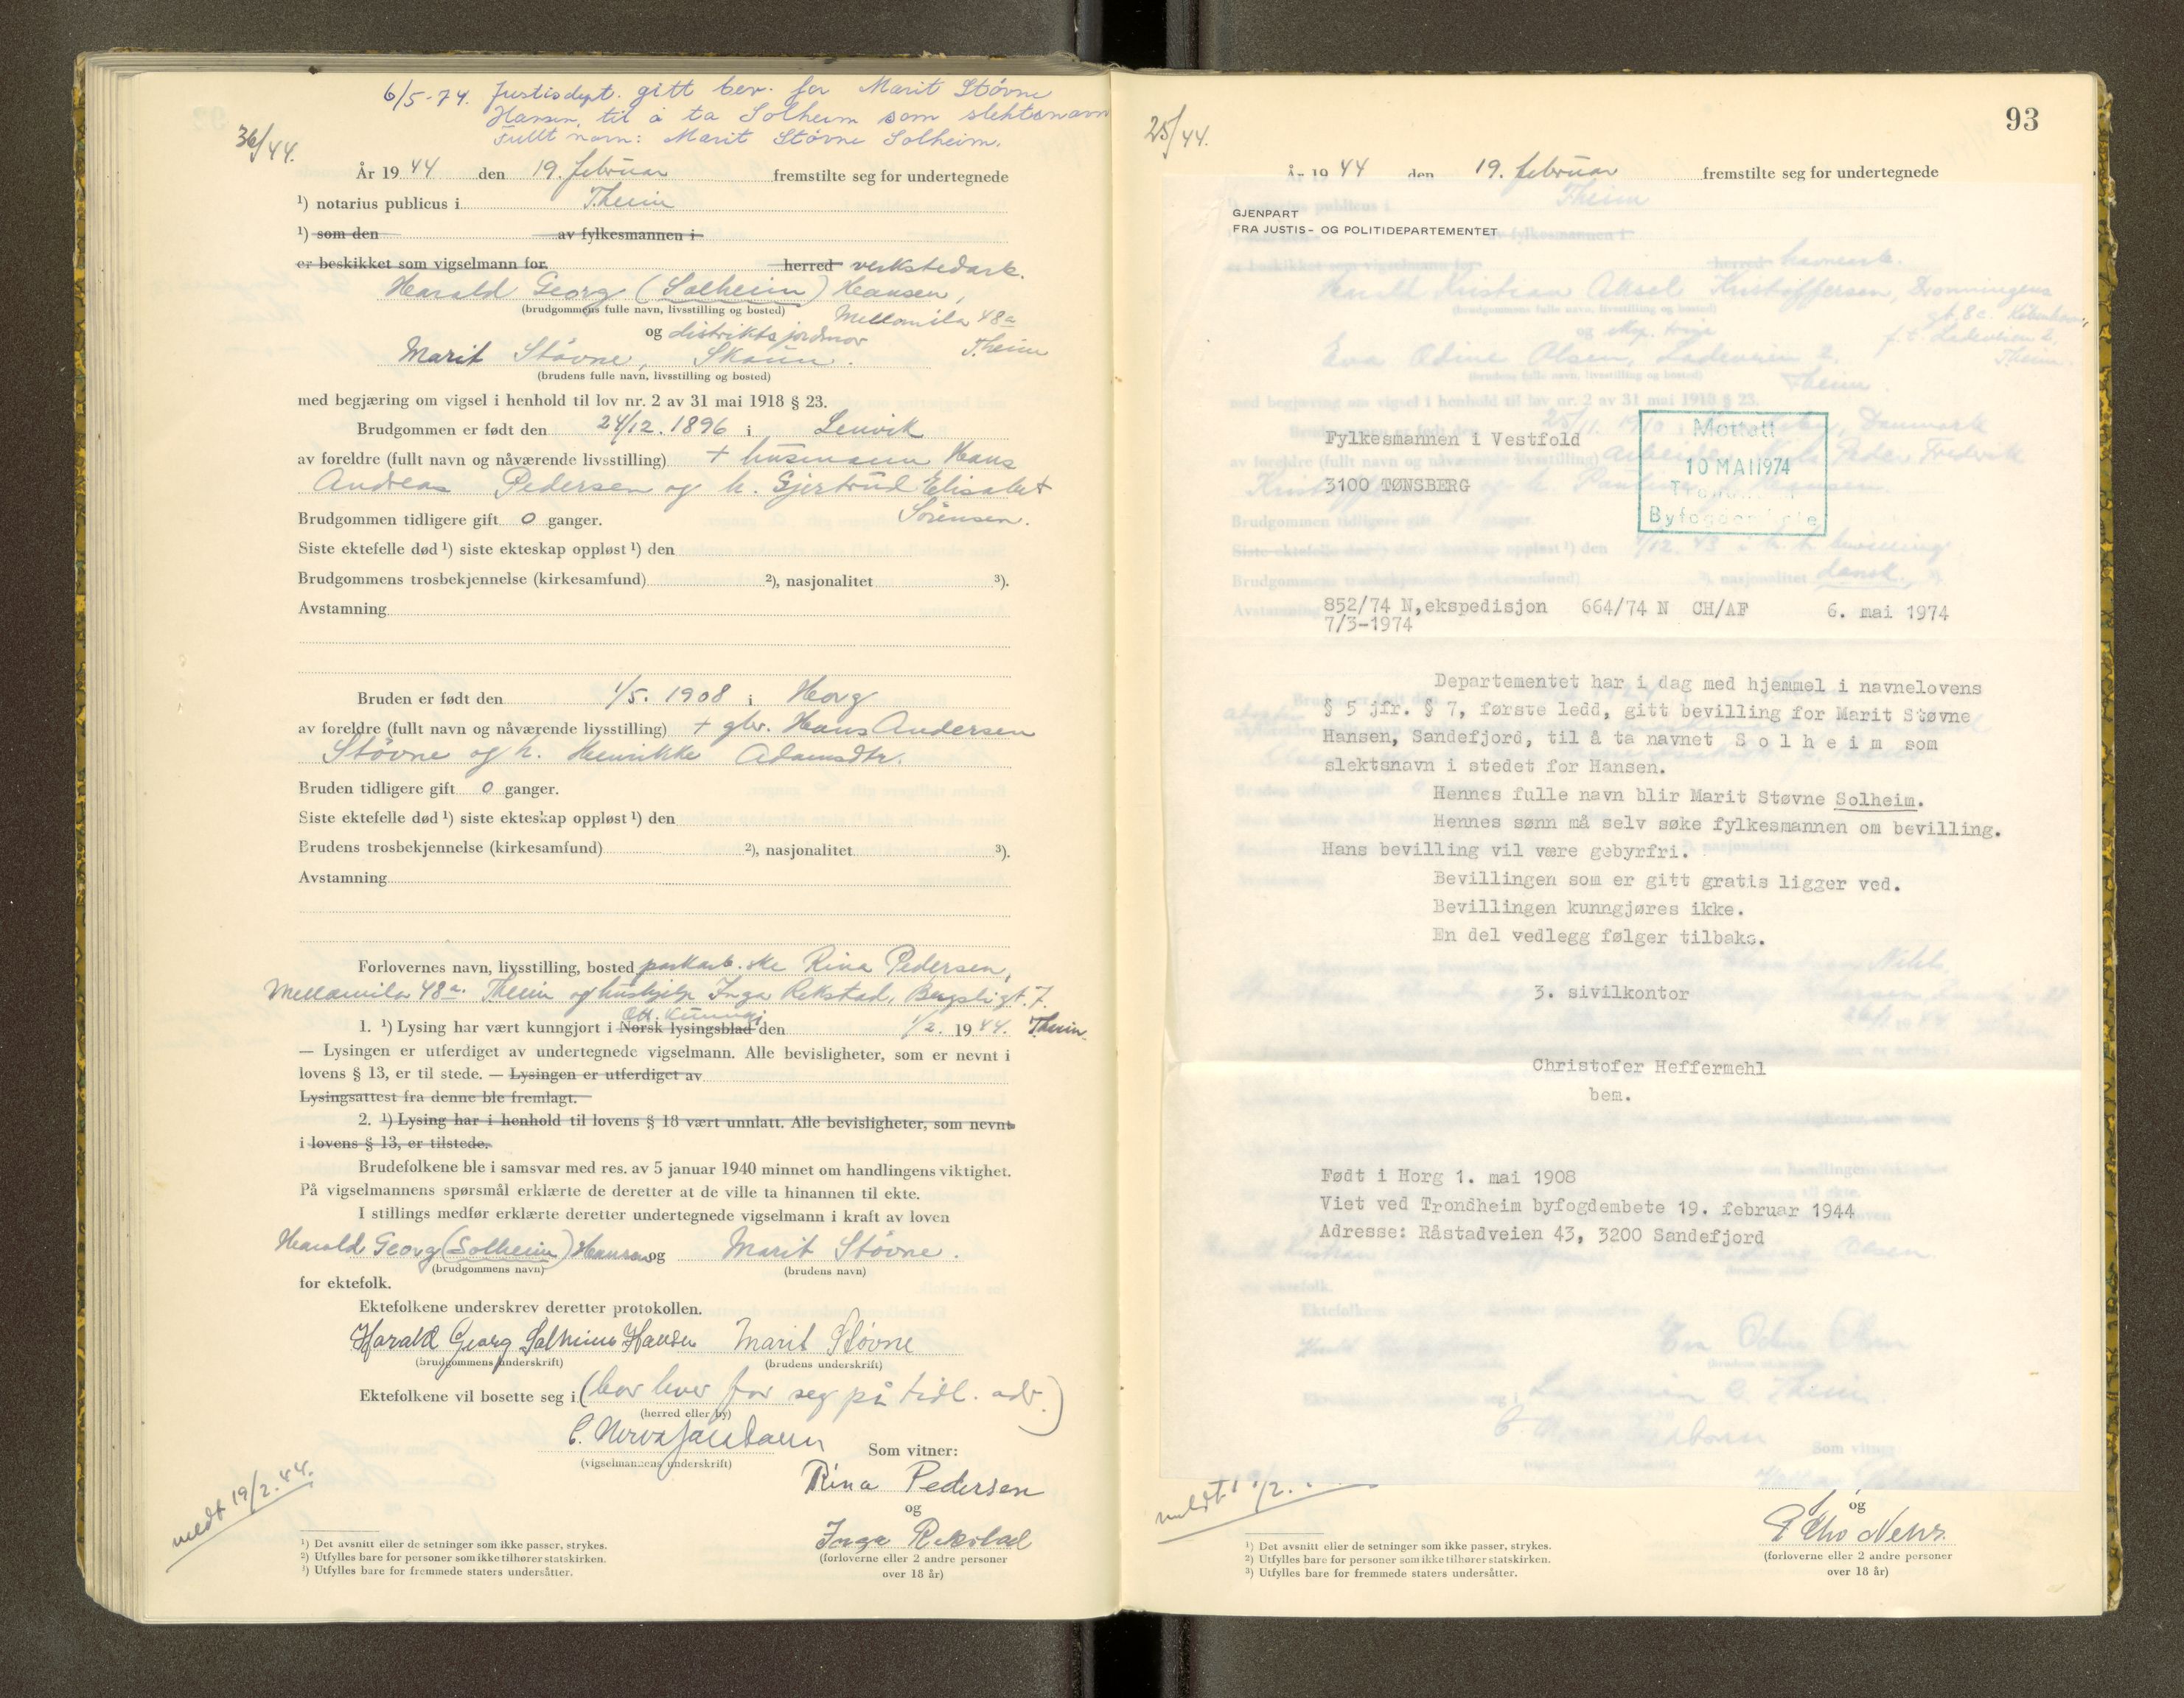 6/5-74. Justisdept. gitt bev. for Marit Støvne
Hansen, til å ta Solheim som slektsnavn
Fullt navn: Marit Støvne Solheim.
36/44.
År 1944 den 19. februar fremstilte seg for undertegnede
¹) notarius publicus i Theim
¹) som den av fylkesmannen i
er beskikket som vigselmann for herred verkstedarb.
Harald Georg (Solheim) Hansen,
(brudgommens fulle navn, livsstilling og bosted) Mellomila 48a
og distriktsjordmor Theim
Marit Støvne, Skaun.
(brudens fulle navn, livsstilling og bosted)
med begjæring om vigsel i henhold til lov nr. 2 av 31 mai 1918 § 23.
Brudgommen er født den 24/12. 1896 i Lenvik
av foreldre (fullt navn og nåværende livsstilling) + husmann Hans
Andreas Pedersen og h. Gjertrud Elisabet
Brudgommen tidligere gift 0 ganger. Sørensen.
Siste ektefelle død ¹) siste ekteskap oppløst ¹) den
Brudgommens trosbekjennelse (kirkesamfund) ²), nasjonalitet ³).
Avstamning
Bruden er født den 1/5. 1908 i Horg
av foreldre (fullt navn og nåværende livsstilling) + gbr. Hans Andersen
Støvne og h. Henrikke Adamsdtr.
Bruden tidligere gift 0 ganger.
Siste ektefelle død ¹) siste ekteskap oppløst ¹) den
Brudens trosbekjennelse (kirkesamfund) ²), nasjonalitet ³).
Avstamning
Forlovernes navn, livsstilling, bosted parkarb. ske Rina Pedersen,
Mellomila 48a. Theim og hushjelp Inga Rekstad, Bergsligt. 7.
Off. kunngj
1. ¹) Lysing har vært kunngjort i Norsk lysingsblad den 1/2. 1944. Theim.
— Lysingen er utferdiget av undertegnede vigselmann. Alle bevisligheter, som er nevnt i
lovens § 13, er til stede. — Lysingen er utferdiget av
Lysingsattest fra denne ble fremlagt.
2. ¹) Lysing har i henhold til lovens § 18 vært unnlatt. Alle bevisligheter, som nevnt
i lovens § 13, er tilstede.
Brudefolkene ble i samsvar med res. av 5 januar 1940 minnet om handlingens viktighet.
På vigselmannens spørsmål erklærte de deretter at de ville ta hinannen til ekte.
I stillings medfør erklærte deretter undertegnede vigselmann i kraft av loven
Harald Georg (Solheim) Hansen og Marit Støvne.
(brudgommens navn) (brudens navn)
for ektefolk.
Ektefolkene underskrev deretter protokollen.
Harald Georg Solheim Hansen Marit Støvne
(brudgommens underskrift) (brudens underskrift)
Ektefolkene vil bosette seg i (bor hver for seg på tidl. adr.)
(herred eller by)
(vigselmannens underskrift) Som vitner:
Rina Pedersen
og
Inga Rekstad
(forloverne eller 2 andre personer
over 18 år)
meldt 19/2. 44.
¹) Det avsnitt eller de setninger som ikke passer, strykes.
²) Utfylles bare for personer som ikke tilhører statskirken.
³) Utfylles bare for fremmede staters undersåtter.
93
25/44.
År 1944 den 19. februar fremstilte seg for undertegnede
GJENPART
FRA JUSTIS- OG POLITIDEPARTEMENTET
Fylkesmannen i Vestfold
3100 TØNSBERG
Mottatt
10 MAI 1974
Trondheim
Byfogdembete
852/74 N, ekspedisjon 664/74 N CH/AF 6. mai 1974
7/3-1974
Departementet har i dag med hjemmel i navnelovens
§ 5 jfr. § 7, første ledd, gitt bevilling for Marit Støvne
Hansen, Sandefjord, til å ta navnet S o l h e i m som
slektsnavn i stedet for Hansen.
Hennes fulle navn blir Marit Støvne Solheim.
Hennes sønn må selv søke fylkesmannen om bevilling.
Hans bevilling vil være gebyrfri.
Bevillingen som er gitt gratis ligger ved.
Bevillingen kunngjøres ikke.
En del vedlegg følger tilbake.
3. sivilkontor
Christofer Heffermehl
bem.
Født i Horg 1. mai 1908
Viet ved Trondheim byfogdembete 19. februar 1944
Adresse: Råstadveien 43, 3200 Sandefjord
og
(forloverne eller 2 andre personer
over 18 år)
¹) Det avsnitt eller de setninger som ikke passer, strykes.
²) Utfylles bare for personer som ikke tilhører statskirken.
³) Utfylles bare for fremmede staters undersåtter.